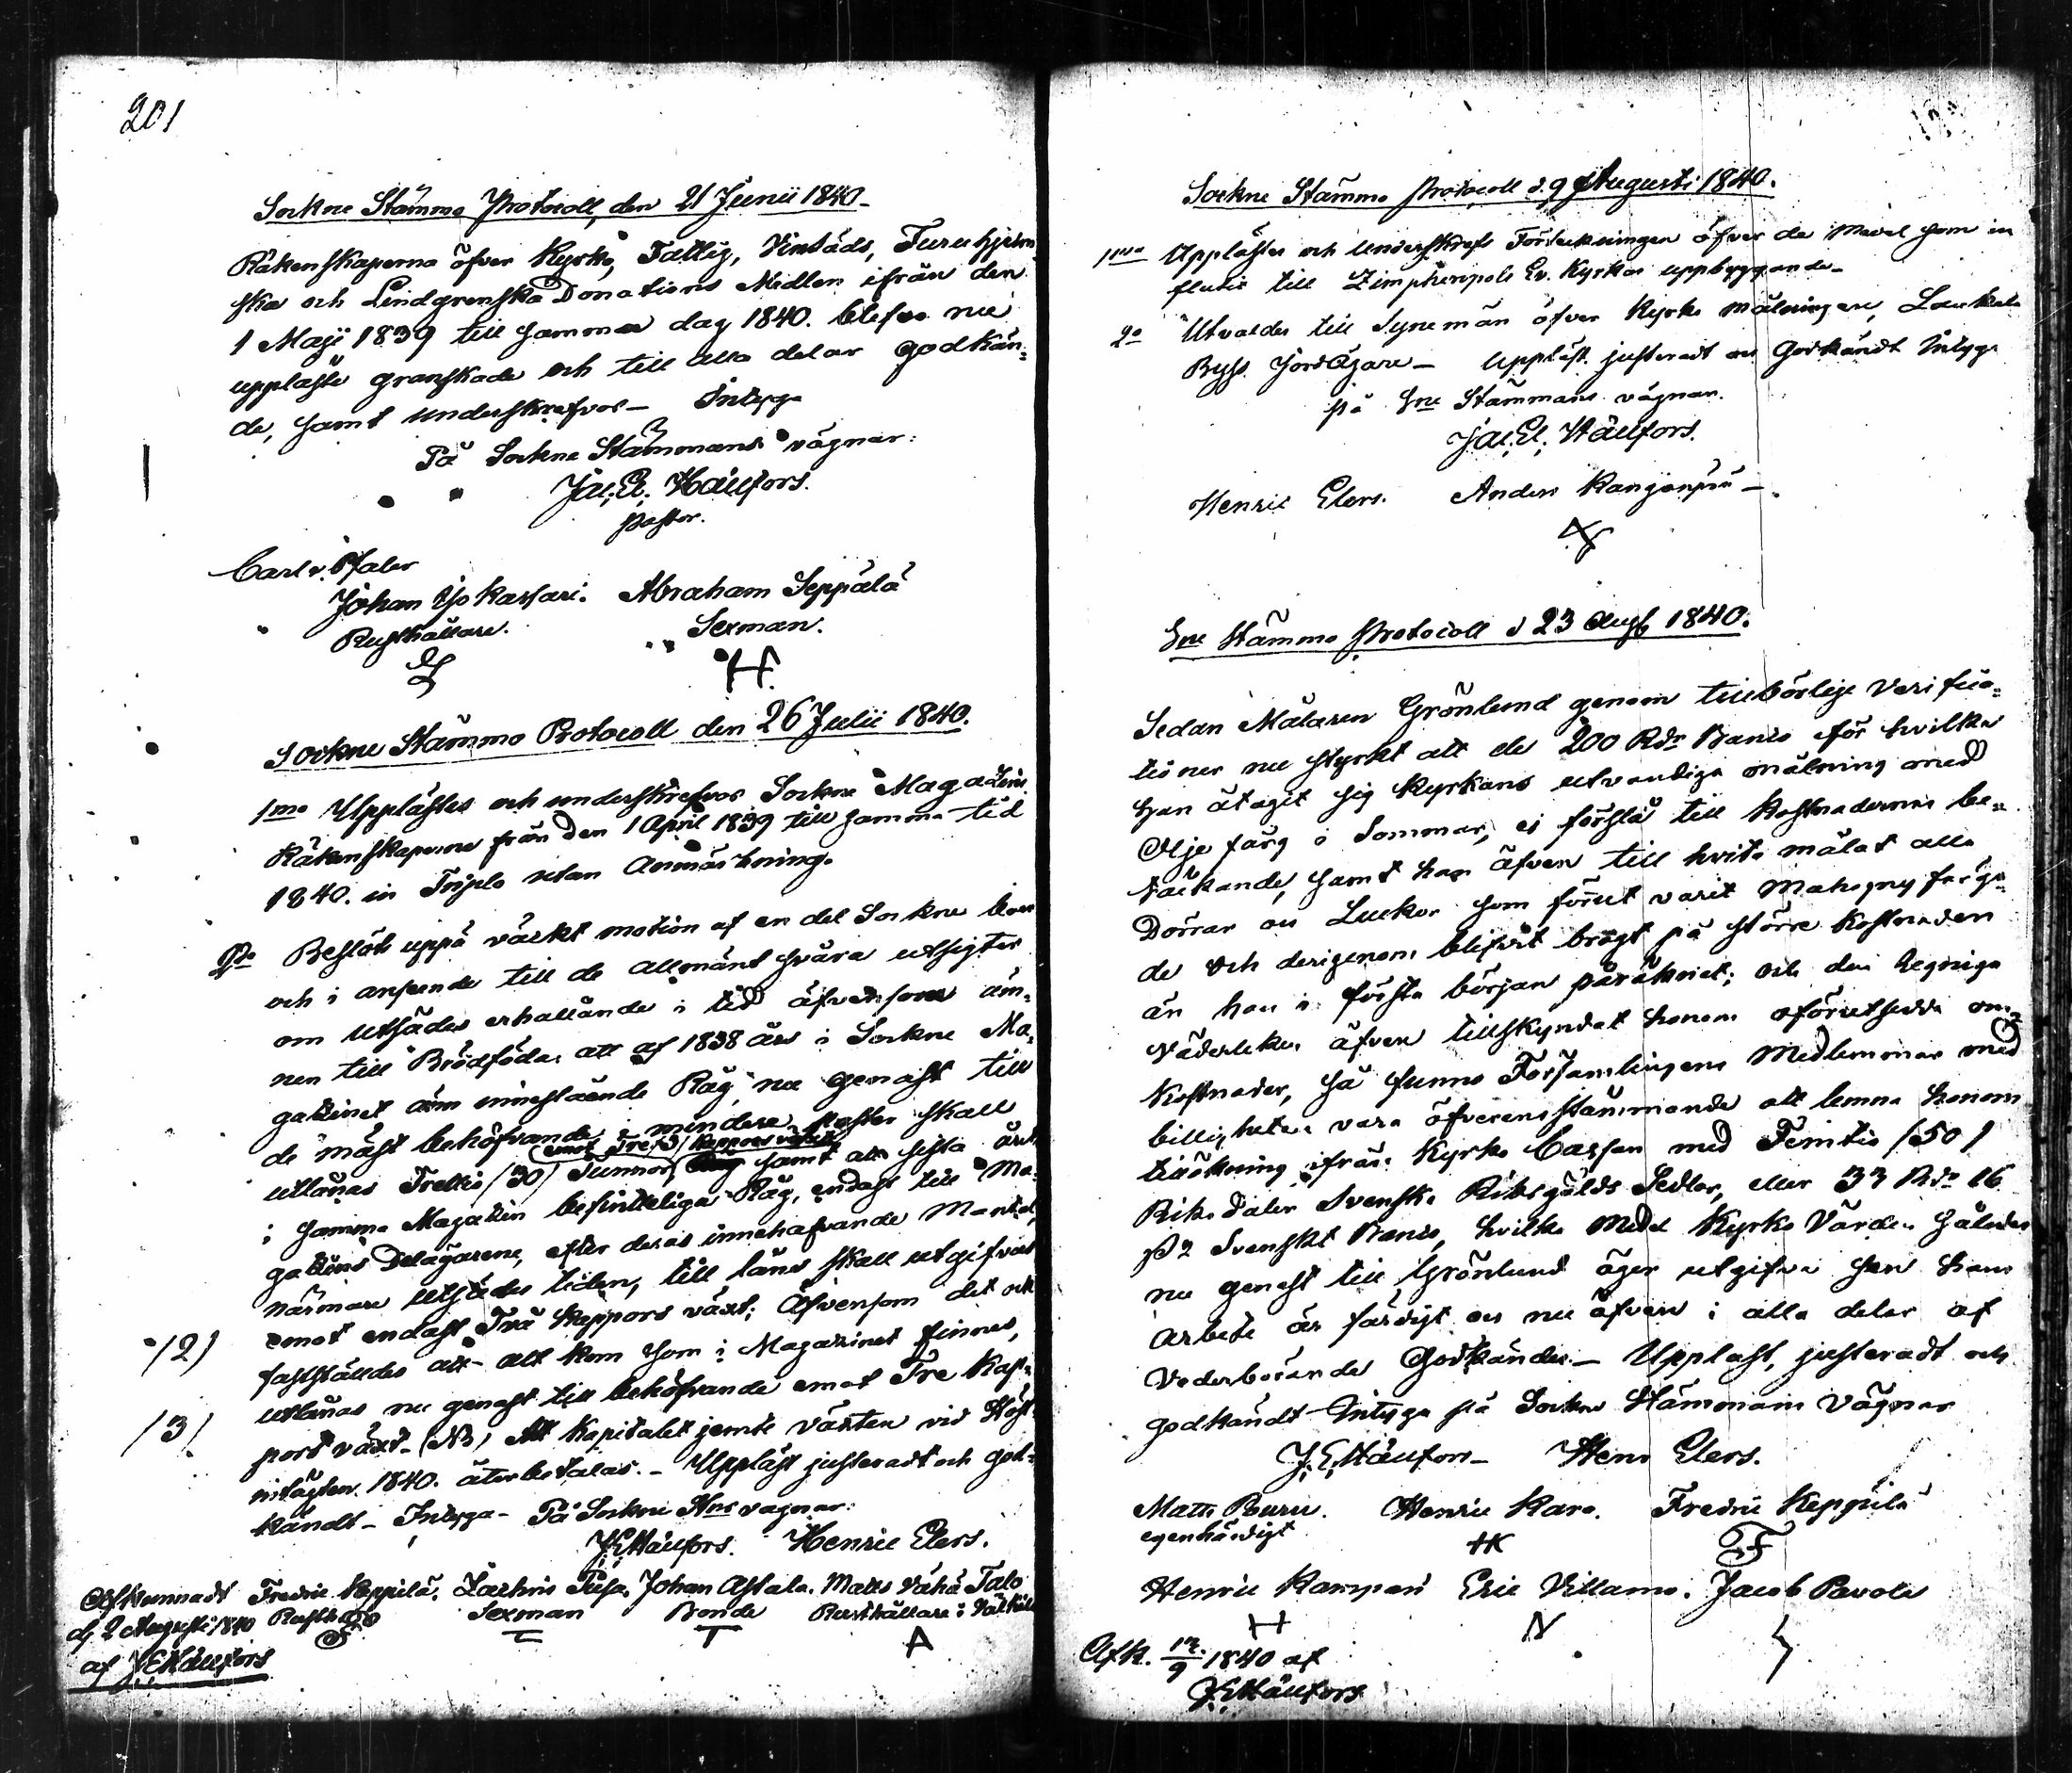 201
Sockne Stämmo Protocoll, den 21 Junii 1840.
Räkenskaperna öfver Kyrko, Fattig, Vinsäds, Turuhjelm
ska och Lindgrenska Donations Medlen ifrån den
1 Maji 1839 till samma dag 1840. blefvo nu
uppläste granskade och till alla delar godkän=
de, samt underskrefvos – Intyga
På Sockne Stämmans vägnar:
Jac. El. Hällfors.
Pastor.
Carl v. Pfaler
Johan Yjo Karsari. Abraham Seppälä
Rusthållare. Sexman.
H
Sockne Stämmo Protocoll den 26 Julii 1840.
1mo Upplästes och underskrefvos Sockne Magazins
Räkenskaperne från den 1 April 1839 till samma tid
1840. in Triplo utan Anmärkning.
2do Beslöts uppå väckt motion af en del Sockne boer
och i anseende till de allmänt svåra utsigter
om Utsädes erhallände i tid äfvensom äm=
nen till Brödföda, att af 1838 års i Sockne Ma=
gazinet ännu innestående Råg, nu genast till
de mäst behöfvande i mindre poster skall
emot Tre /3/ kappors växt
utlånas Trettio /30/ Tunnor samt all sista året
i samma Magazin befinteliga Råg, endast till Ma=
gazins Delägarene, efter deras innehafvande Mantal,
närmare Utsädes tiden, till låns skall utgifvas
/2/ emot endast Två kappors växt; Äfvensom det ock
fastställdes att allt korn som i Magazinet finnes,
/3/ utlånas nu genast till behöfvande emot Tre Kap=
pors växt. (NB) Allt Kapitalet jemte växten vid Höst
intägten 1840. återbetalas. – Uppläst justeradt och god=
kändt – Intyga – På Sockne Stns vägnar:
J. E. Hällfors. Henric Elers.
Afkunnadt Fredric Keppilä, Zachris Pusa, Johan Astala. Matts Vähä Talo
d. 2 Augusti 1840 Rusth Sexman Bonde Rusthållare i
af J. E. Hällfors T A
Sockne Stämmo Protocoll d. 9 Augusti 1840.
1mo Upplästes och Underskrefs Förteckningen öfver de Medel som in
flutit till Zimpheropols Ev. Kyrkas uppbyggande.
2o Utvaldes till Synemän öfver Kyrko målningen, Laukala
Bys JordÄgare – Uppläst justeradt och Godkändt Intyga
på Sne Stämmans vägnar.
Jac. El. Hällfors.
Henric Elers. Anders Kangänpää –
Sne Stämmo Protocoll d 23 Aug. 1840.
Sedan Målaren Grönlund genom tillbörlige Verifica=
tioner nu styrkt att de 200 Rdr Banco för hvilka
han åtagit sig Kyrkans utvändiga målning med
Olje färg i Sommar, ej förslå till kostnadernas be=
täckande, samt han äfven till hvita målat alla
Dörrar och Luckor som förut varit Mahogny färga=
de och derigenom blifvit bragt på större Kostnaden
än han i första början påräknat; och den Regniga
Väderleken äfven tillskyndat honom oförutsedda om=
kostnader, så funno Församlingens Medlemmar med
billigheten vara öfverensstämmande att lemna honom
tillökning ifrån Kyrko Cassan med Femtio /50/
Riks Daler Svenska Riksgälds Sedlar, eller 33 Rdr 16
s. Svenskt Banco, hvilka Medel Kyrko Värden således
nu genast till Grönlund äger utgifva sen hans
arbete är färdigt och nu äfven i alla delar af
Vederbörande Godkändes. – Uppläst, justeradt och
godkändt Intyga på Sockne Stämmans Vägnar
J. E. Hällfors – Henr Elers.
Matts Bouru. Henric Kara. Fredric Keppilä
egenhändigt HK F
Henric Kampari Eric Villamo. Jacob Pavola
H N
Afk. 13/9 1840 af
J. E. Hällfors